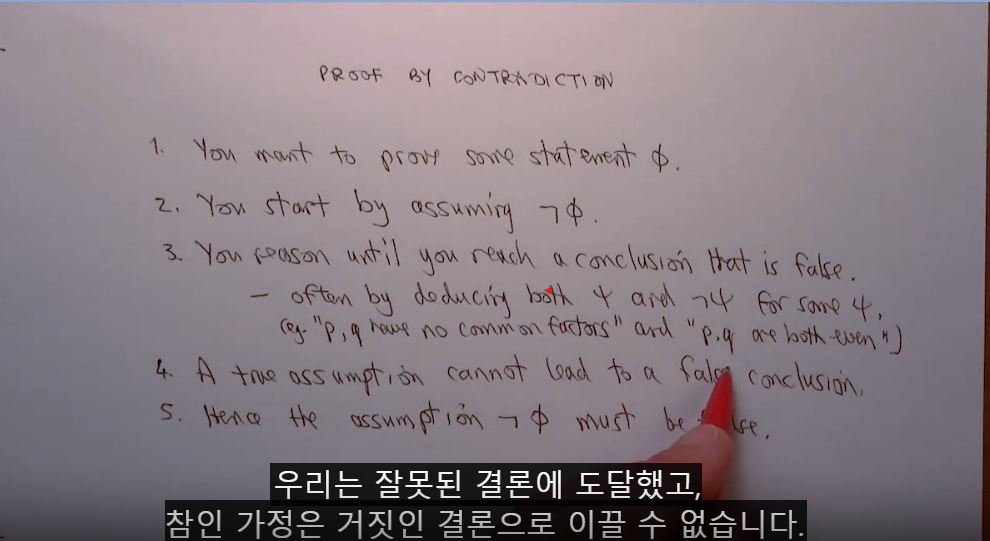 PROOF BY CONTRADICTION
1. You want to prove some statement ϕ.
2. You start by assuming ¬ϕ.
3. You reason until you reach a conclusion that is false.
– often by deducing both ψ and ¬ψ for some ψ.
(eg. "p,q have no common factors" and "p,q are both even")
4. A true assumption cannot lead to a false conclusion.
5. Hence the assumption ¬ϕ must be false.
우리는 잘못된 결론에 도달했고,
참인 가정은 거짓인 결론으로 이끌 수 없습니다.